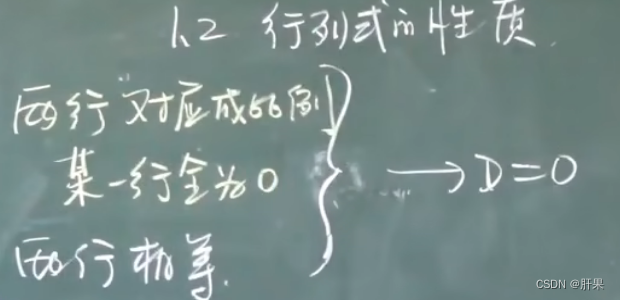 1.2 行列式的性质.
两行对应成比例
某一行全为0
两行相等.
→D=0
CSDN @肝果